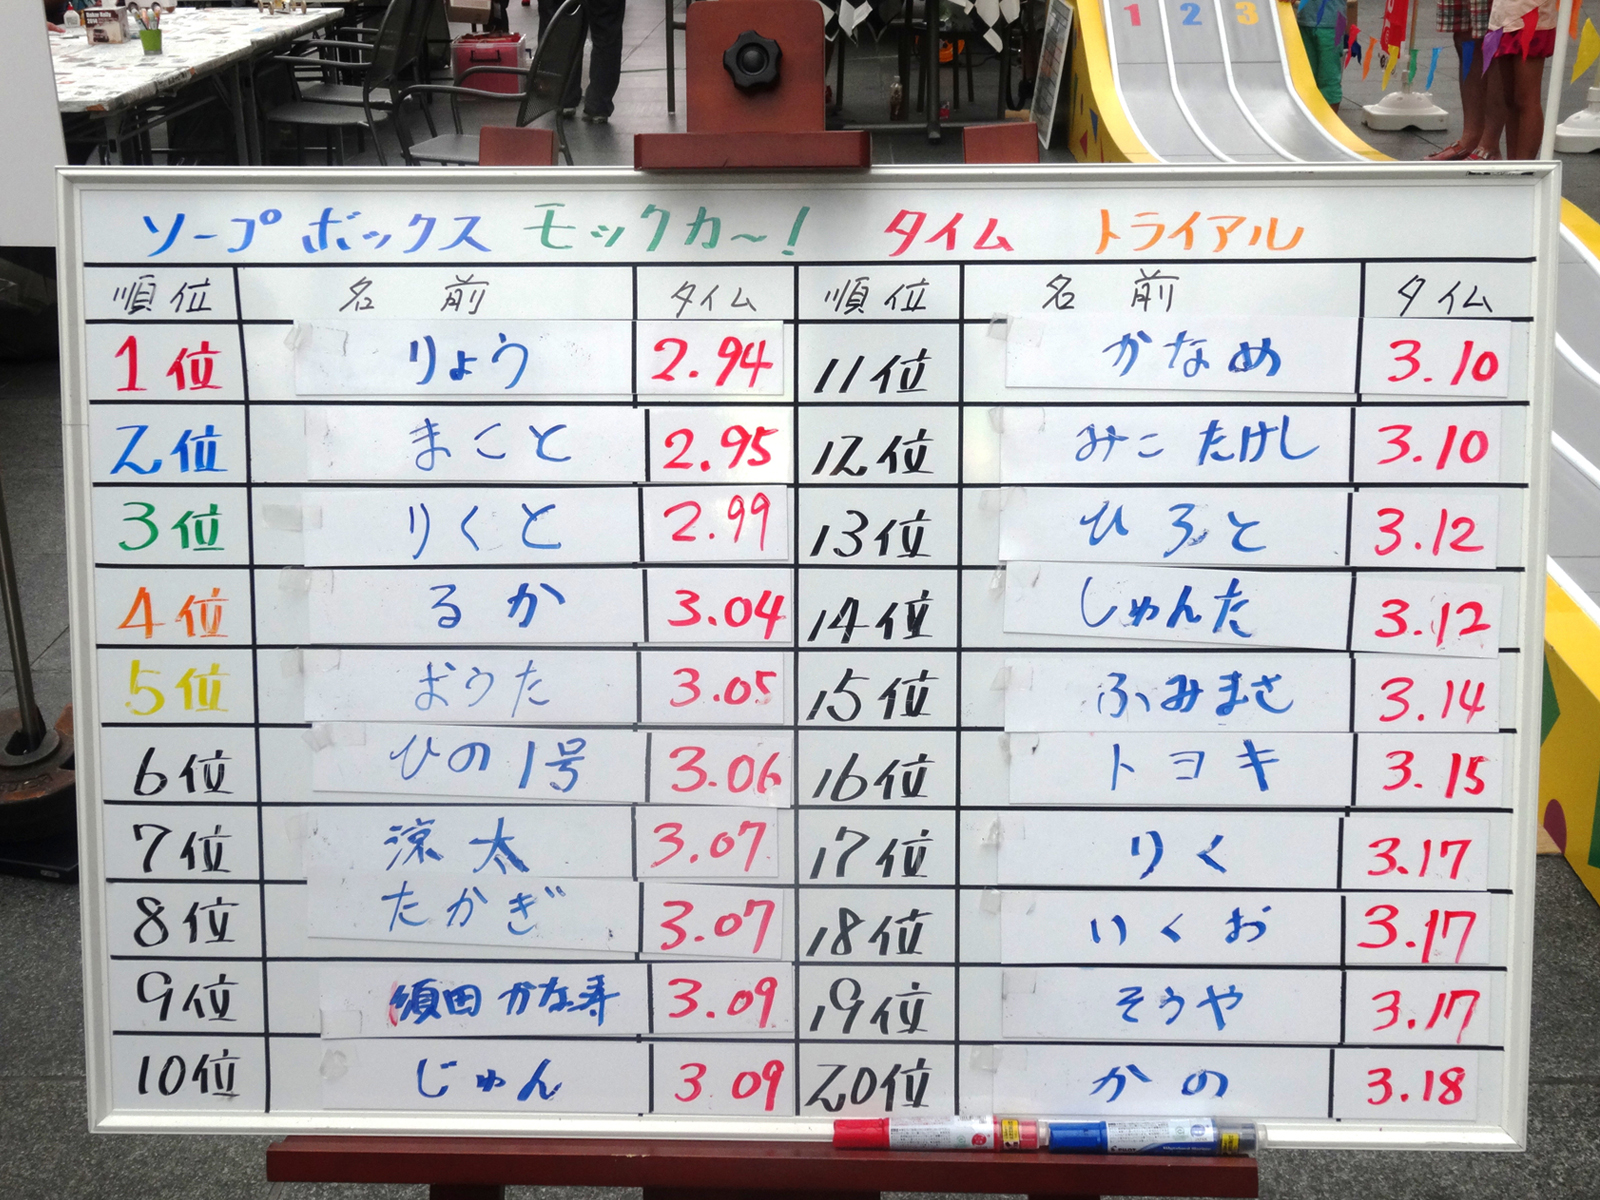 1 2 3
ソープボックス モックカ～! タイム トライアル
順位 名前 タイム 順位 名前 タイム
1位 りょう 2.94 11位 かなめ 3.10
2位 まこと 2.95 12位 みこ たけし 3.10
3位 りくと 2.99 13位 ひろと 3.12
4位 るか 3.04 14位 しゅんた 3.12
5位 おうた 3.05 15位 ふみまさ 3.14
6位 ひの1号 3.06 16位 トヨキ 3.15
7位 涼太 3.07 17位 りく 3.17
8位 たかぎ 3.07 18位 いくお 3.17
9位 須田 かな寿 3.09 19位 そうや 3.17
10位 じゅん 3.09 20位 かの 3.18